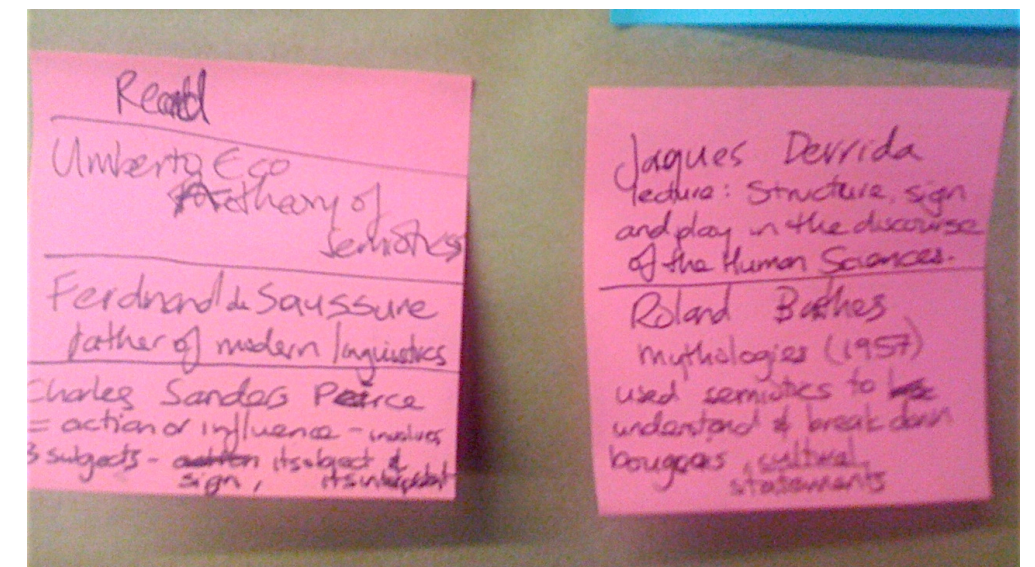 Read
Umberto Eco
theory of
Semiotics
Ferdinand de Saussure
father of modern linguistics
Charles Sanders Peirce
= action or influence - involves
3 subjects - its object &
sign, its interpretant
Jaques Derrida
lecture: Structure, sign
and play in the discourse
of the Human Sciences.
Roland Bathes
mythologies (1957)
used semiotics to
understand & break down
cultural
statements